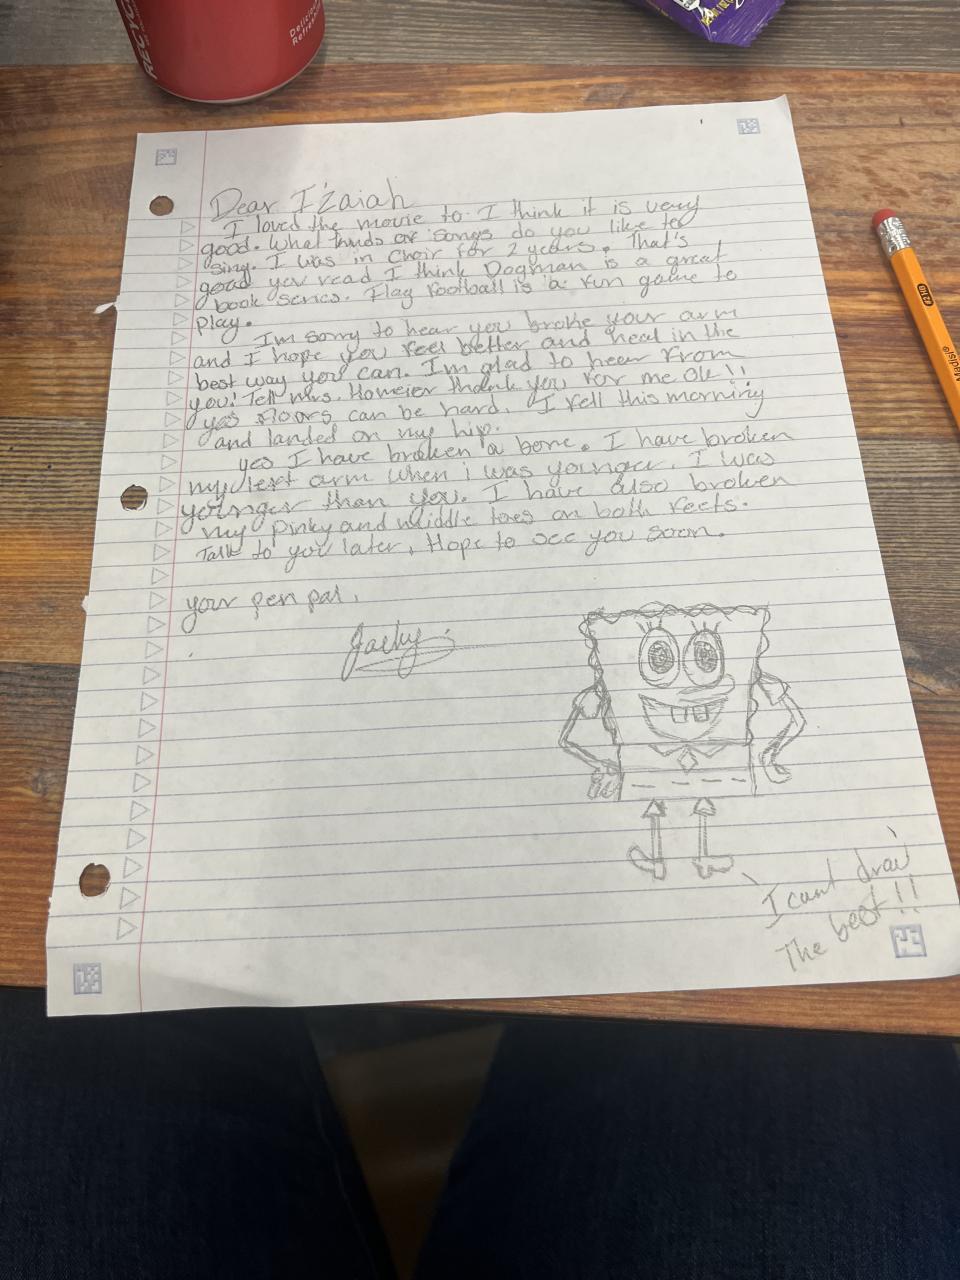 RECYC
Delicious
Refreshi
Dear I'zaiah
I loved the movie to. I think it is very
good. What kinds of songs do you like to
sing. I was in choir for 2 years. That's
good you read I think Dogman is a great
book series. Flag football is a fun game to
play.
I'm sorry to hear you broke your arm
and I hope you feel better and heal in the
best way you can. I'm glad to hear from
you! Tell Mrs. Homeier thank you for me Ok!!
yes floors can be hard. I fell this morning
and landed on my hip.
yes I have broken a bone. I have broken
my left arm when i was younger. I was
younger than you. I have also broken
my pinky and middle toes on both feets.
Talk to you later, Hope to see you soon.
your pen pal,
I cant draw
The best!!